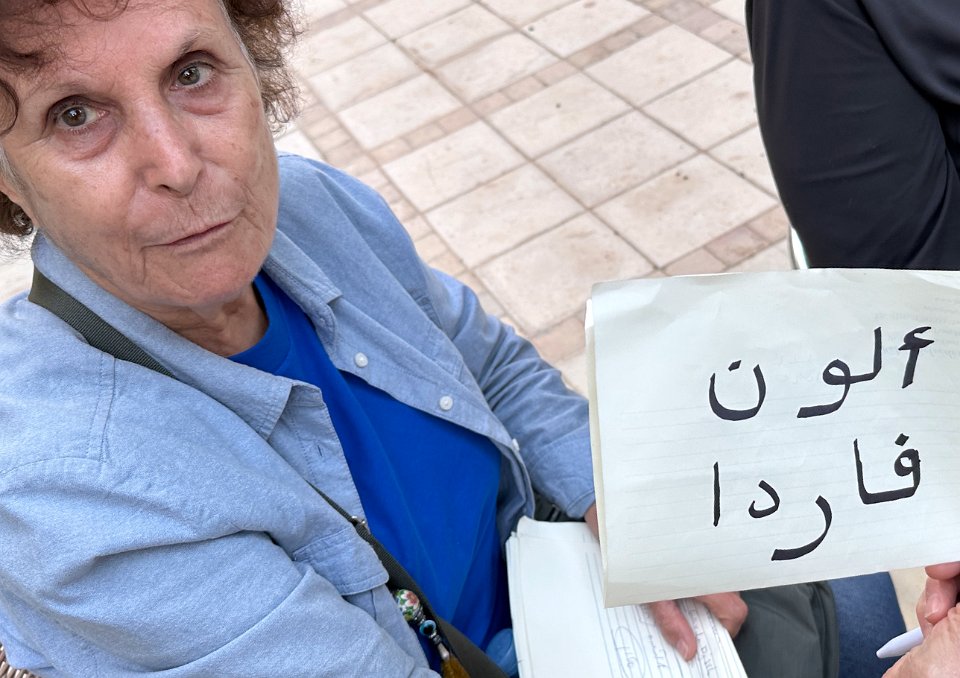 ألون
فاردا